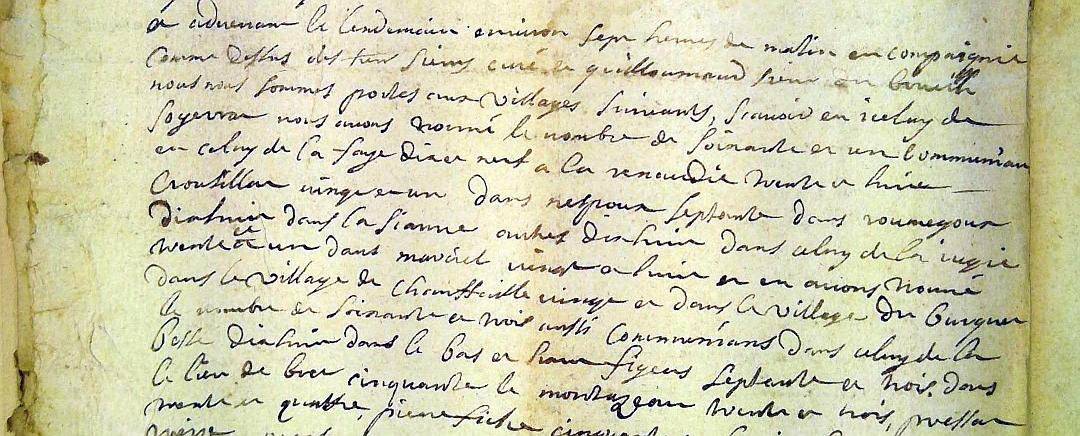 et advenant le lendemain environ sept heures de matin en compaignie
comme dessus des sieurs curé de guilloumaud sieur du breuilh
nous nous sommes portes aux villages suivants, scavoir en iceluy de
soyevrar nous avons nommé le nombre de soixante et un communians
en celuy de la faye dix et neuf a la renaudie trente et huit
croutillar vingt et un dans nespoux septante dans roumegoux
dixhuit dans la sianne autres dixhuit dans celuy de la iugie
trente et un dans maviel vingt et huit et en avions nommé
dans le village de chauffaille vingt et dans le village du burguer
le nombre de soixante et trois aussi communians dans celuy de la
besse dixhuit dans le bas et haut figeas septante et trois, dans
le lieu de bret cinquante le montazeau trente et trois, pressat
trente et quattre, pierrefiche cinquante